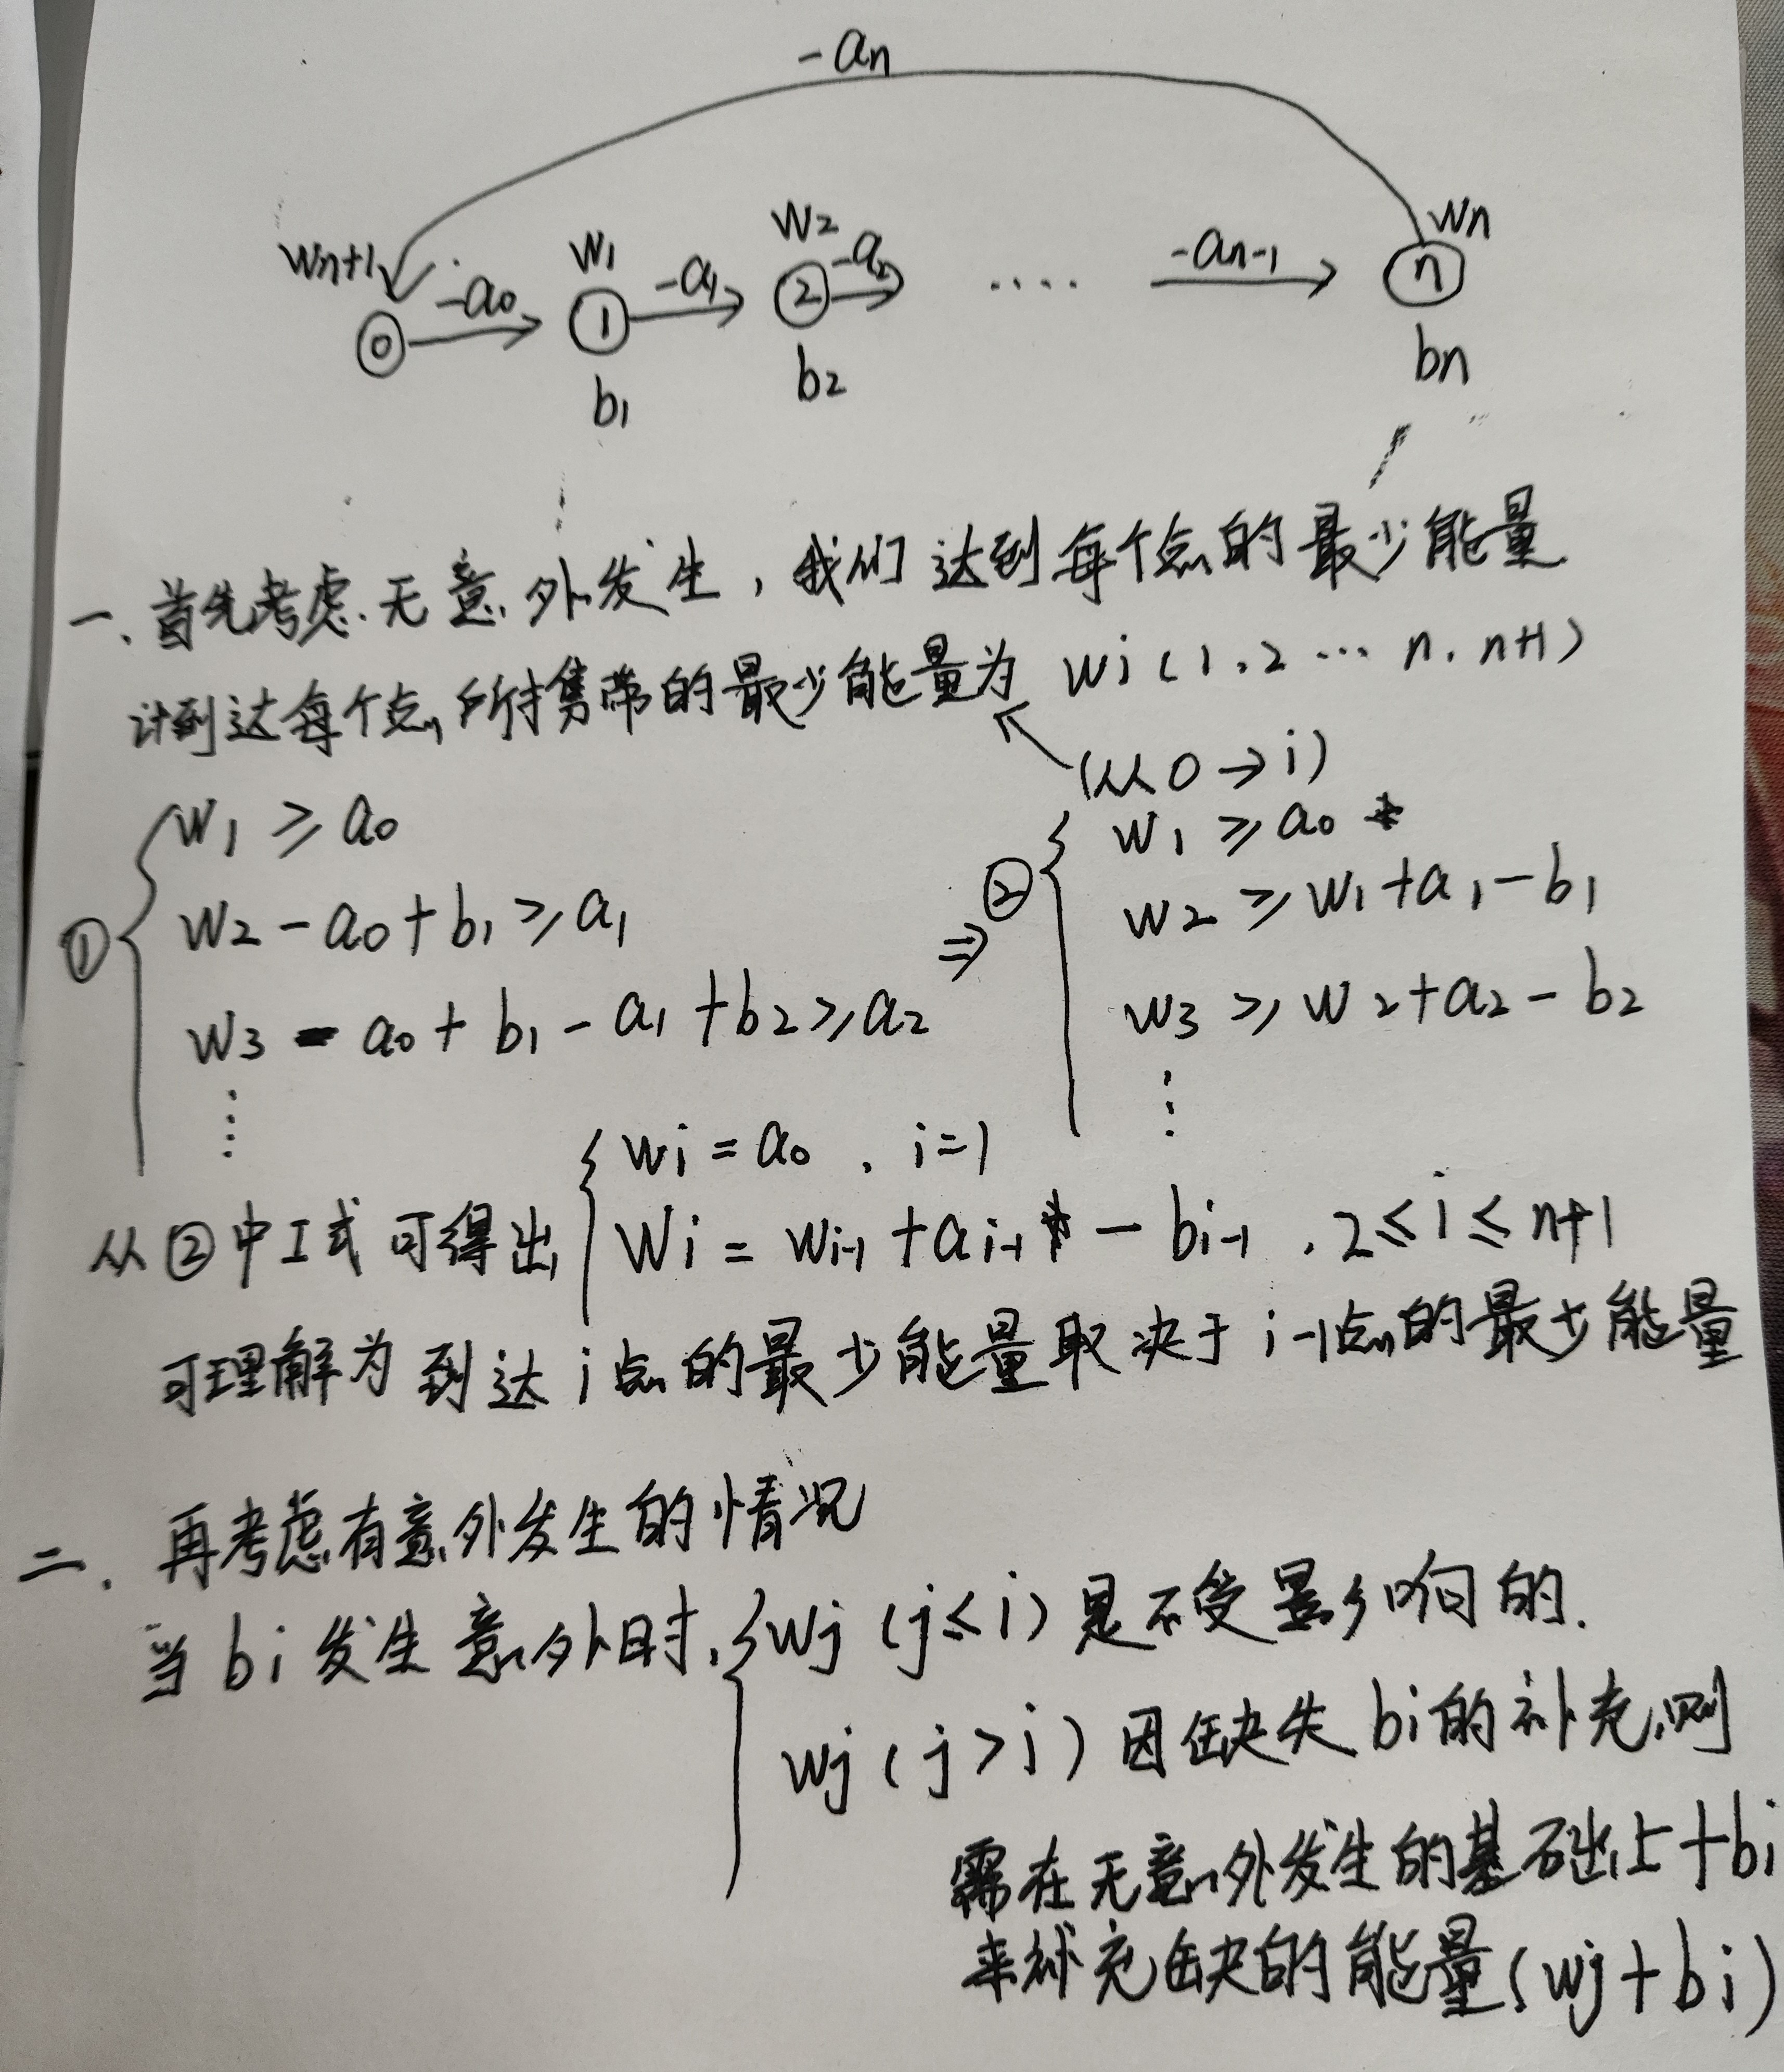 -an
wn+1 -a0 w1 -a1 w2 -a2 .... -an-1 wn
0 1 2 n
b1 b2 bn
一、首先考虑无意外发生，我们达到每个点的最少能量
计到达每个点所携带的最少能量为 wi (1,2 … n, n+1)
(从0→i)
① { w1 ≥ a0
w2 - a0 + b1 ≥ a1
w3 - a0 + b1 - a1 + b2 ≥ a2
⋮
⇒ ② { w1 ≥ a0
w2 ≥ w1 + a1 - b1
w3 ≥ w2 + a2 - b2
⋮
从②中I式可得出 { wi = a0 , i=1
wi = wi-1 + ai-1 - bi-1 , 2≤i≤n+1
可理解为到达i点的最少能量取决于i-1点的最少能量
二、再考虑有意外发生的情况
当bi发生意外时, { wj (j≤i) 是不受影响的.
wj (j>i) 因缺失bi的补充,则
需在无意外发生的基础上+bi
来补充缺的能量(wj+bi)